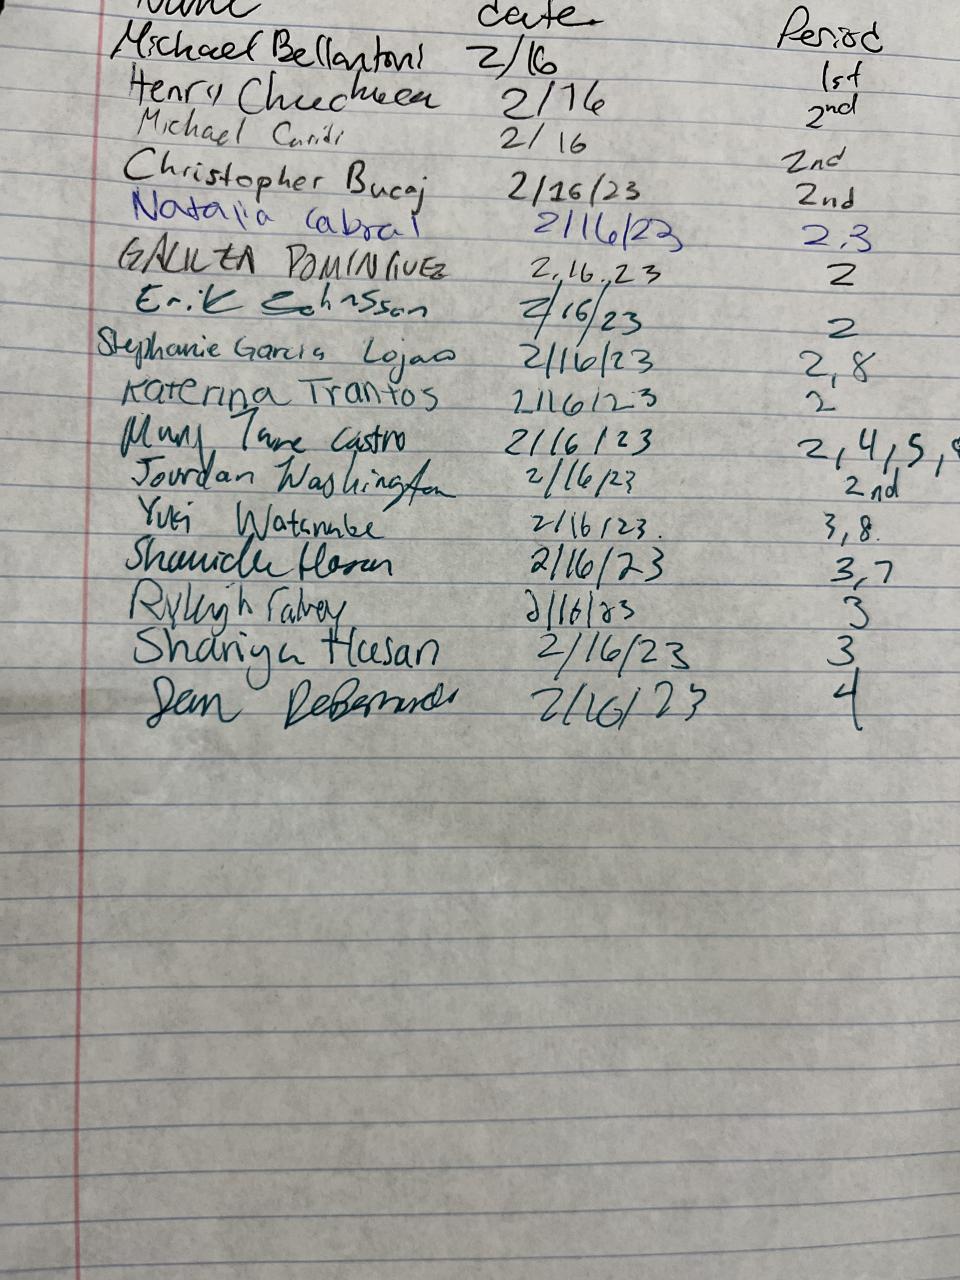 Name date Period
Michael Bellantoni 2/16 1st
Henry 2/16 2nd
Michael Caridi 2/16 2nd
Christopher Bucaj 2/16/23 2nd
Natalia Cabral 2/16/23 2,3
DOMINGUEZ 2,16,23 2
Erik 2/16/23 2
Stephanie Garcia Lojano 2/16/23 2,8
Katerina Trantos 2/16/23 2
Mary Jane Castro 2/16/23 2,4,5,
Jourdan Washington 2/16/23 2nd
Yuki Watanabe 2/16/23. 3,8.
2/16/23 3,7
Ryleigh 2/16/23 3
Shariya Hasan 2/16/23 3
2/16/23 4